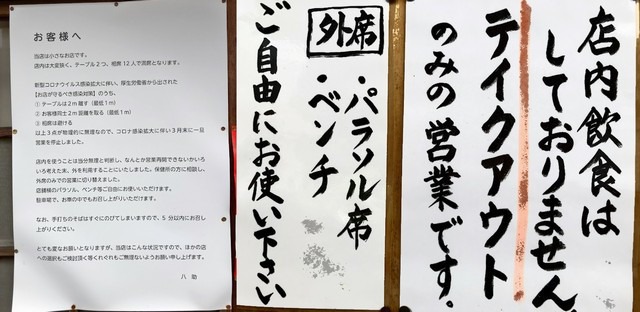 お客様へ
当店は小さなお店です。
店内は大変狭く、テーブル2つ、相席12人で満席となります。
新型コロナウイルス感染拡大に伴い、厚生労働省から出された
【お店が守るべき感染対策】のうち、
① テーブルは2m離す（最低1m）
② お客様同士2m距離を取る（最低1m）
③ 相席は避ける
以上3点が物理的に無理なので、コロナ感染拡大に伴い3月末に一旦
営業を停止しました。
店内を使うことは当分無理と判断し、なんとか営業再開できないかいろ
いろ考えた末、外を利用することにいたしました。保健所の方に相談し、
外席のみでの営業に切り替えました。
店舗横のパラソル、ベンチ等ご自由にお使いいただけます。
駐車場で、お車の中でもお召し上がりいただけます。
なお、手打ちのそばはすぐにのびてしまいますので、5分以内にお召し
上がりください。
とても変なお願いとなりますが、当店はこんな状況ですので、ほかの店
への選択もご検討頂く等くれぐれもご無理ないようお願い申し上げます。
八助
外席
・パラソル席
・ベンチ
ご自由にお使い下さい
店内飲食は
しておりません。
テイクアウト
のみの営業です。